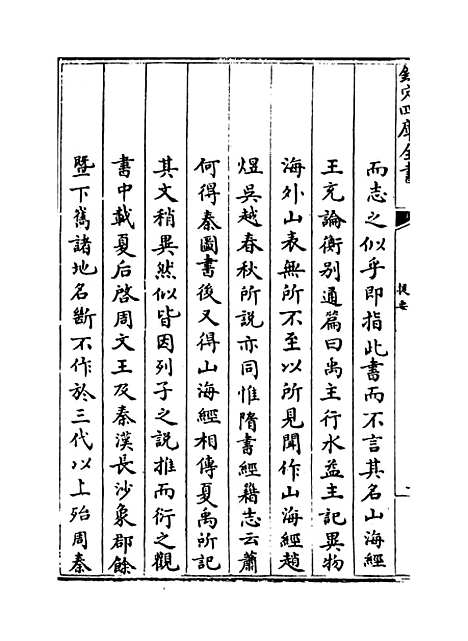 欽定四庫全書
提要
而志之似乎即指此書而不言其名山海經
王充論衡别通篇曰禹主行水益主記異物
海外山表無所不至以所見聞作山海經趙
煜吳越春秋所說亦同惟隋書經籍志云蕭
何得秦圖書後又得山海經相傳夏禹所記
其文稍異然似皆因列子之說推而衍之觀
書中載夏后啓周文王及秦漢長沙象郡餘
暨下嶲諸地名斷不作於三代以上殆周秦